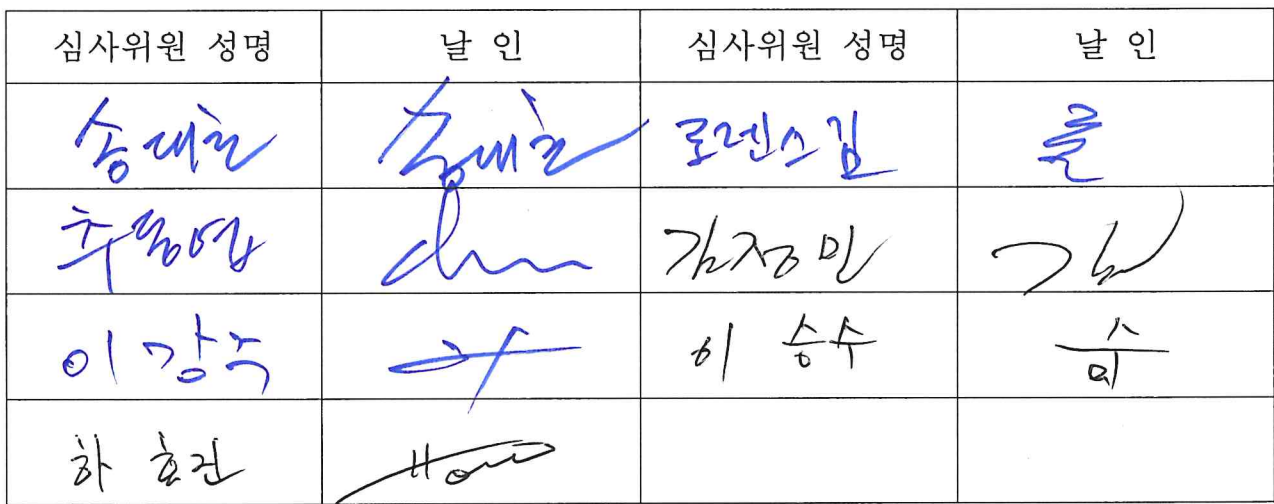 심사위원 성명 날 인 심사위원 성명 날 인
송대호 송대호 로렌스김
추동엽 김정민 김
이강주 이승수
하효진